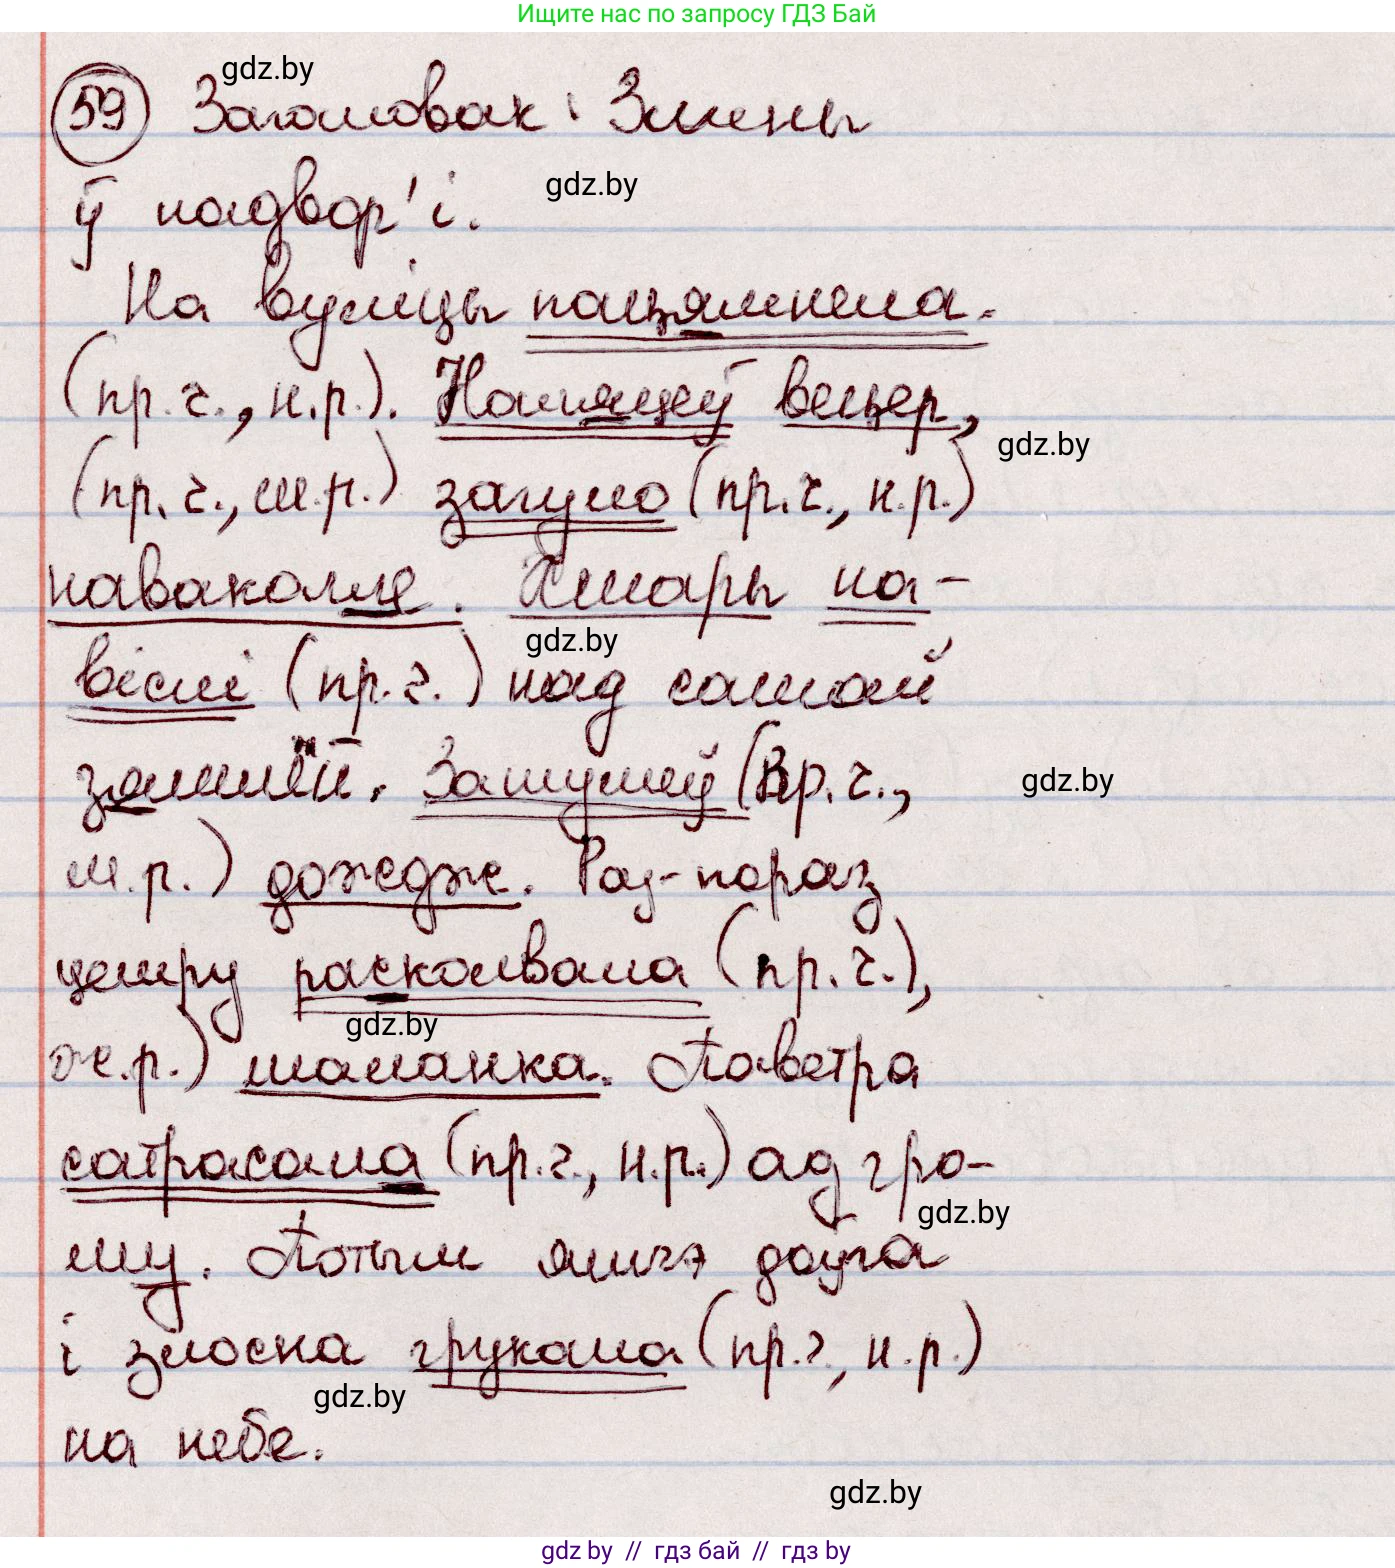 Ищите нас по запросу ГДЗ Бай
gdz.by
59 Загаловак: Змены
gdz.by
ў надвор'і.
На вуліцы пацямнела.
(пр.ч., н.р.). Наляцеў вецер,
gdz.by
(пр.ч., м.р.) загуло (пр.ч., н.р.)
наваколле. Хмары на-
gdz.by
віслі (пр.ч.) над самай
зямлёй. Зашумеў (пр.ч.,
gdz.by
м.р.) дождж. Раз-пораз
цемру расколвала (пр.ч.),
gdz.by
ж.р.) маланка. Паветра
сатрасала (пр.ч., н.р.) ад гро-
gdz.by
му. Потым яшчэ доўга
і злосна грукала (пр.ч., н.р.)
gdz.by
на небе.
gdz.by
gdz by // гдз бай // гдз by